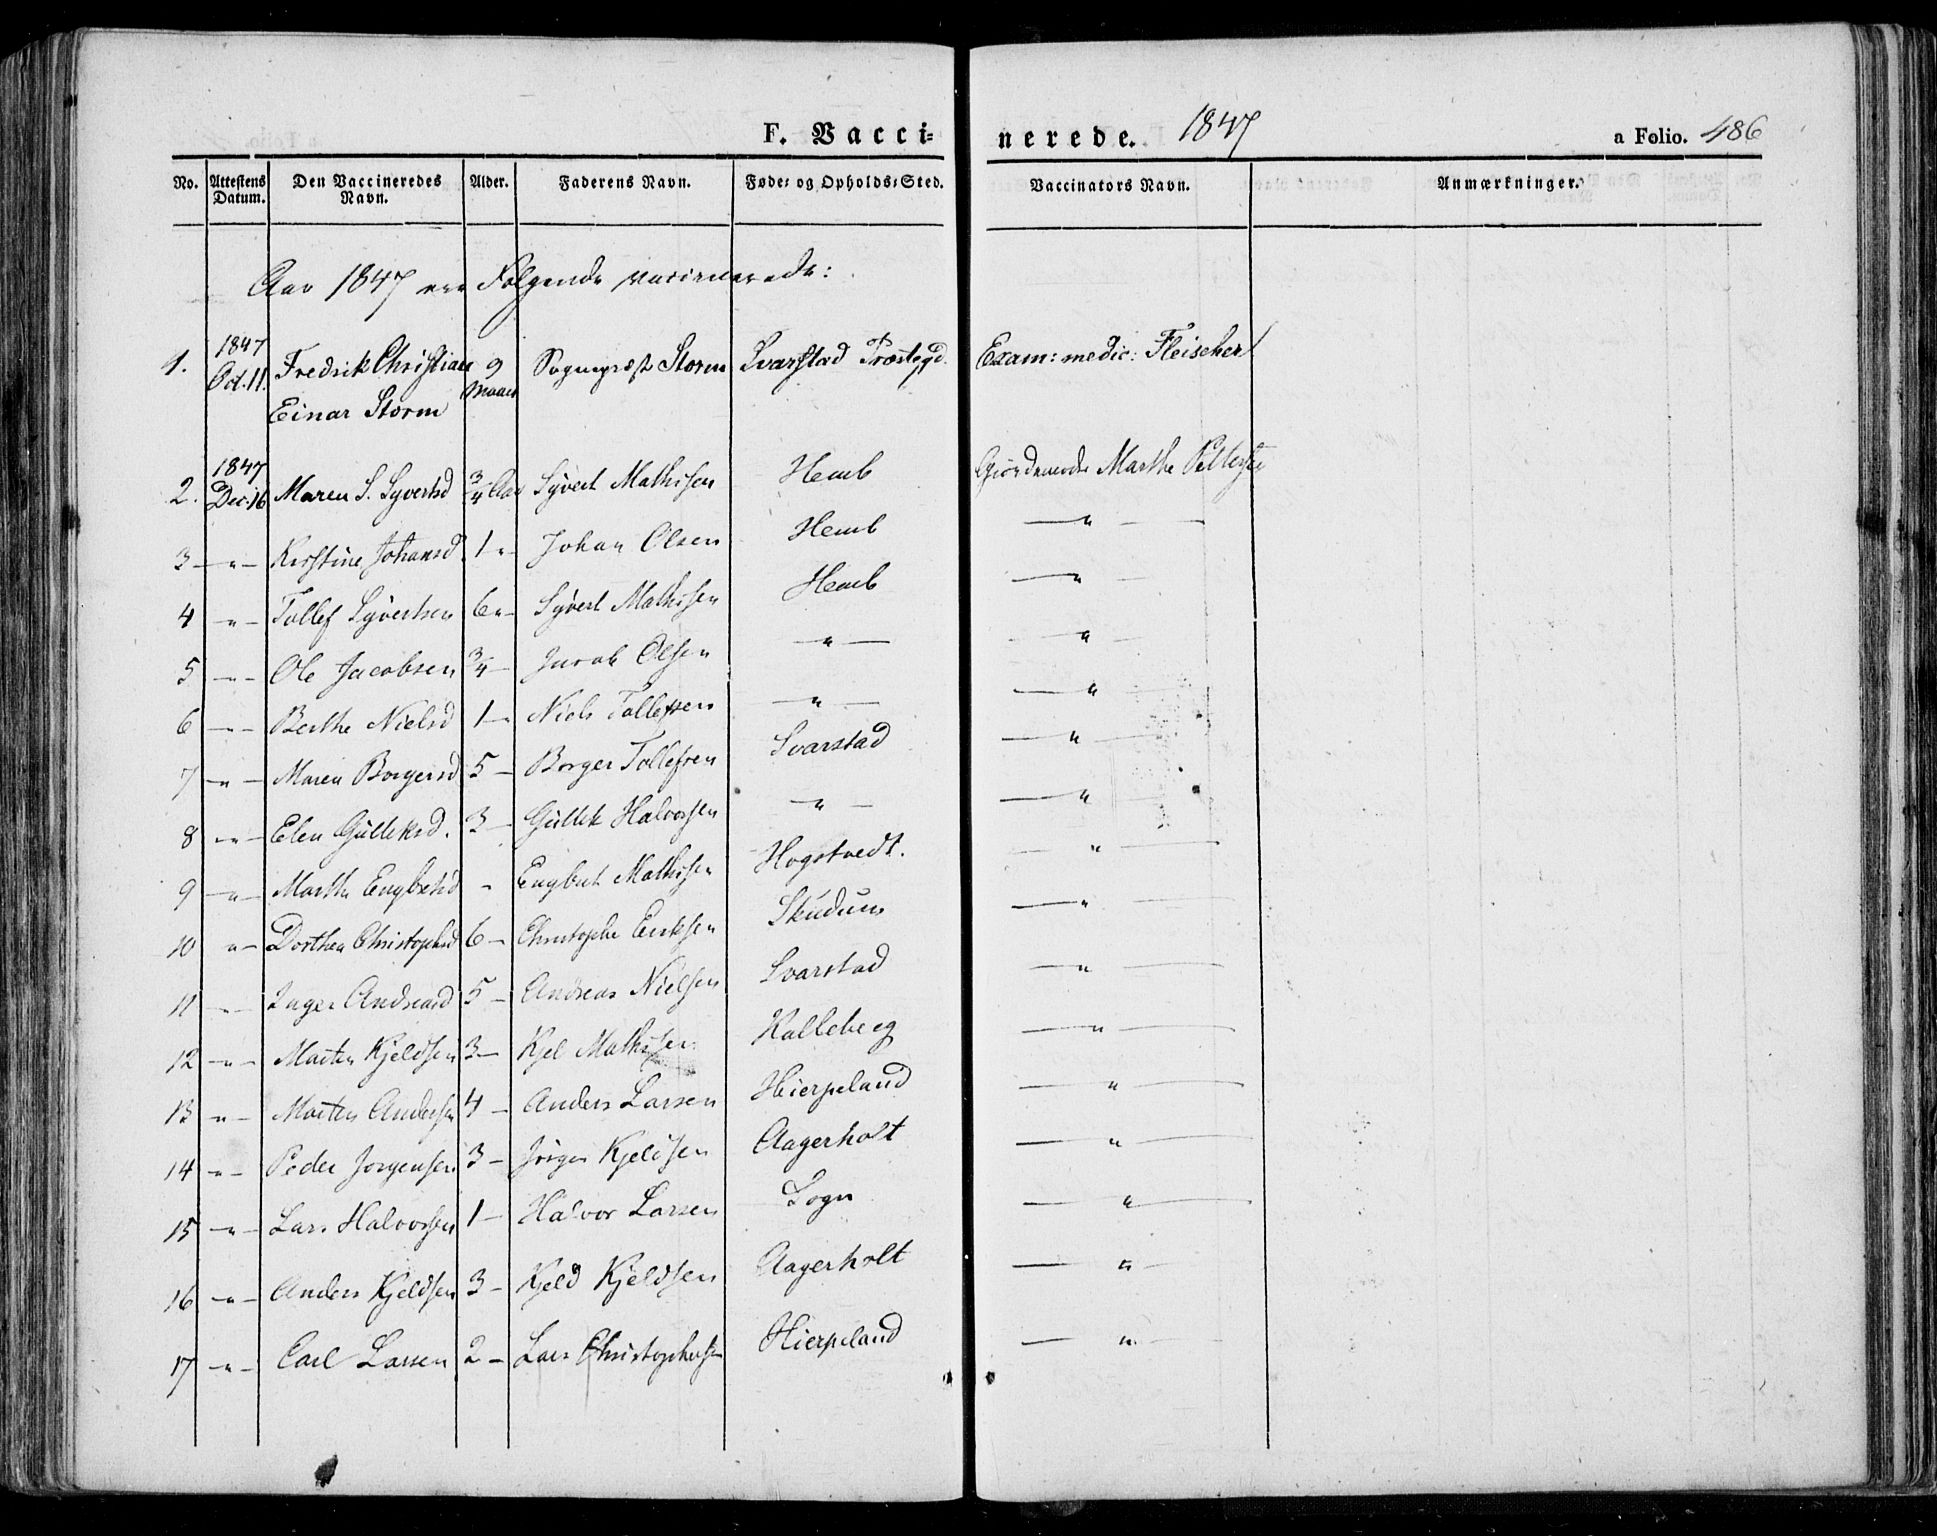 F. Vaccinerede. 1847 a Folio. 486
No. Attestens Datum. Den Vaccineredes Navn. Alder. Faderens Navn. Føde- og Opholds-Sted. Vaccinators Navn. Anmærkninger.
Aar 1847 ere Følgende vaccinerede:
1. 1847 Oct. 11. Fredrik Christian Einar Storm 9 Maan Sognepræst Storm Svarstad Præstegd. Exam: medic: Fleischer
2. 1847 Dec. 16 Maren S. Syvertsd 3/4 Aar Syvert Mathisen Hemb Giordemoder Marthe
3 — " — Kirstine Johansd. 1 " Johan Olsen Hemb — " —
4 — " — Tollef Syvertsen 6 " — Syvert Mathisen Hemb — " —
5 — " — Ole Jacobsen 3/4 — Jacob Olsen — " — — " —
6 — " — Berthe Nielsd 1 — " Niels Tollefsen — " — — " —
7 — " — Maren Borgersd 5 — Borger Tollefsen Svarstad — " —
8 — " — Elen Gulleksd. 3 — Gullek Halvorsen — " — — " —
9 — " — Marthe Engbretsd " Engbret Mathisen Hogstvedt. — " —
10 " — Dorthea Christophsd 6 — Christophe Eriksen Skudum — " —
11 — " — Inger Andreasd 5 — Andreas Nielsen Svarstad — " —
12 — " — Morten Kjeldsen 3 — Kjel Mathisen Kalleberg — " —
13 " — Morten Andersen 4 — Anders Larsen Hierpeland — " —
14 " — Peder Jorgensen 3 — Jörgen Kjeldsen Aagerholt — " —
15 — " — Lars Halvorsen 1 — Halvor Larsen Sogn — " —
16 — " — Anders Kjeldsen 3 — Kjeld Kjeldsen Aagerholt — " —
17 — " — Carl Larsen 2 — Lars Christophersen Hierpeland — " —